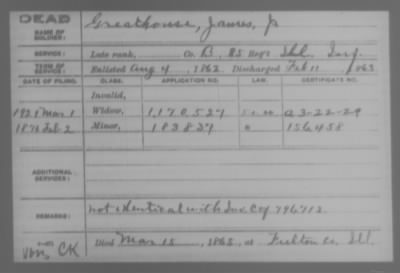 DEAD
NAME OF SOLDIER: Greathouse, James, Jr
SERVICE: Late rank, Co. B, 85 Reg't Ind. Inf.
TERM OF SERVICE: Enlisted Aug 4, 1862 Discharged Feb 11, 1863
DATE OF FILING. CLASS. APPLICATION NO. LAW. CERTIFICATE NO.
Invalid,
1921 Mar 1 Widow, 1,170,527 a 3-22-29
1876 Feb 2 Minor, 183837 " 156458
ADDITIONAL SERVICES:
REMARKS: not identical with Inv. Ctf 796713.
Died Mar 15, 1865, at Fulton Co, Ill.
CK